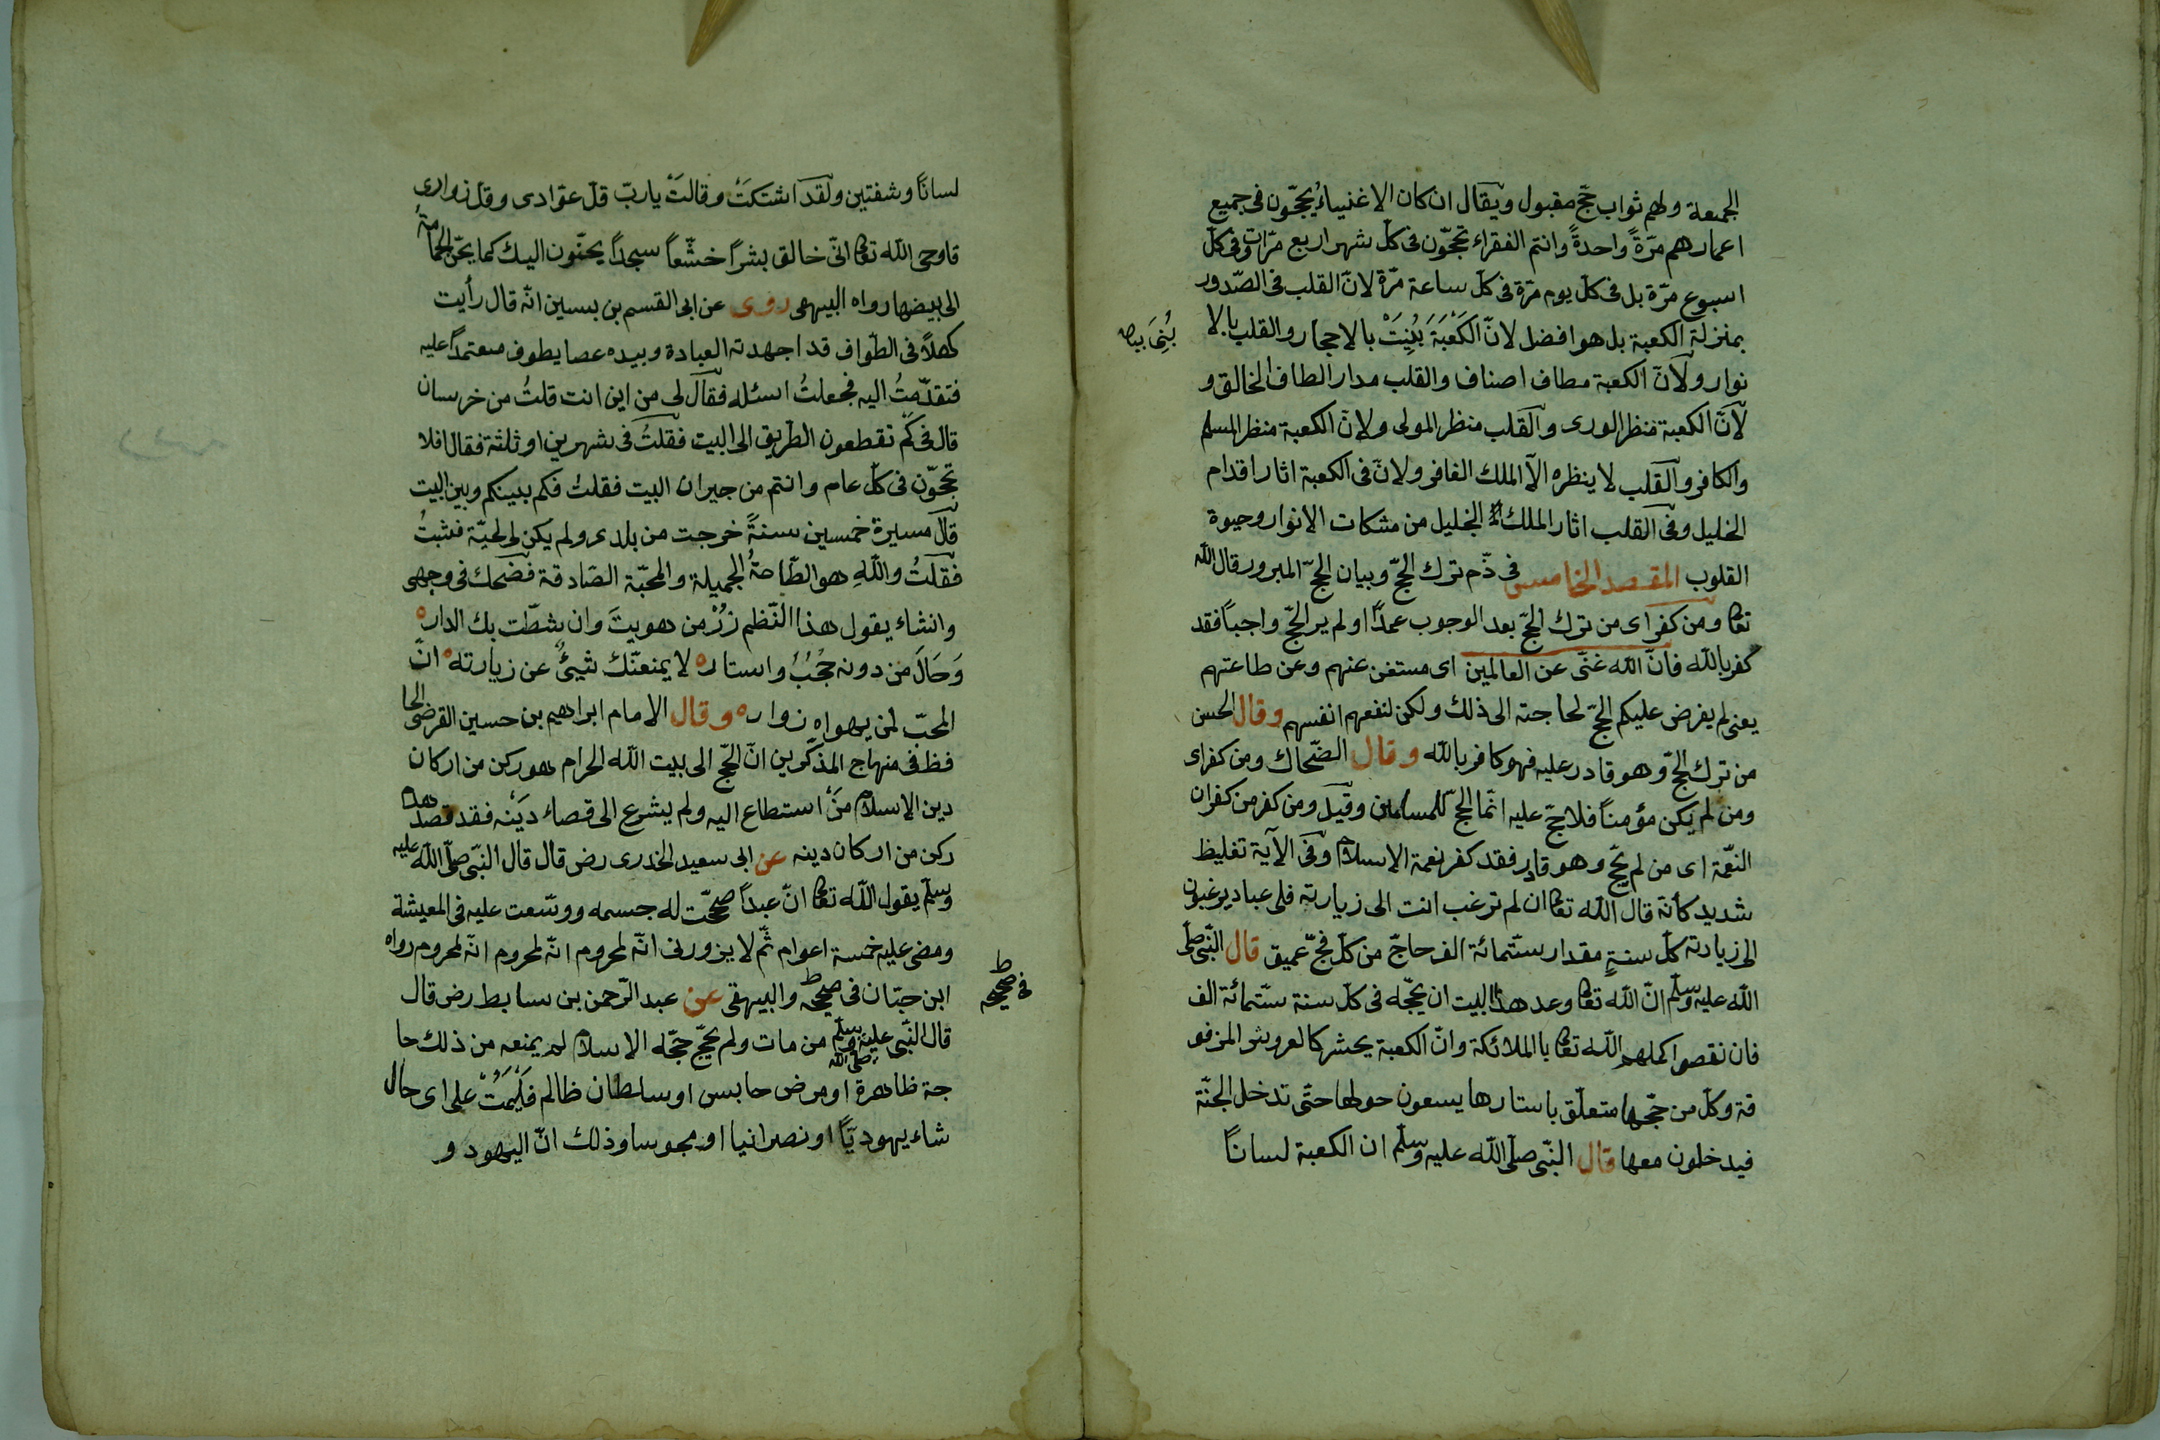 الجمعة ولهم ثواب حجّ مقبول ويقال ان كان الاغنياءُ يحجّون فى جميع
اعمارهم مرّةً واحدةً وانتم الفقراء تحجّون فى كلّ شهر اربع مرّات وفى كلّ
اسبوع مرّة بل فى كلّ يوم مرّة فى كلّ ساعة مرّة لانّ القلب فى الصّدور
بمنزلة الكعبة بل هو افضل لانّ الكَعْبَةَ بُنِيَتْ بالاحجار والقلب بالا
بُنِىَ بيا
نوار ولانّ الكعبة مطاف اصناف والقلب مدار الطاف الخالق و
لانّ الكعبة منظر الورى والقلب منظر المولى ولانّ الكعبة منظر المسلم
والكافر والقلب لا ينظره الّا الملك الغافر ولانّ فى الكعبة اثار اقدام
الخليل وفى القلب اثار الملك الجليل من مشكات الانوار وحيوة
القلوب المقصد الخامس فى ذّم ترك الحجّ وبيان الحجّ المبرور قال اللّه
تعا ومن كفر اى من ترك الحجّ بعد الوجوب عمدًا او لم ير الحجّ واجباً فقد
كفر باللّه فانّ اللّه غنّى عن العالمين اى مستغن عنهم وعن طاعتهم
يعنى لم يفرض عليكم الحجّ لحاجته الى ذلك ولكن لنفعهم انفسهم وقال الحسن
من ترك الحجّ وهو قادر عليه فهو كافر باللّه وقال الضّحاك ومن كفر اى
ومن لم يكن مؤمناً فلا حجّ عليه انّما الحجّ للمسلمين وقيل ومن كفر من كفران
النعّمة اى من لم يحجّ وهو قادر فقد كفر نعمة الاسلام وفى الآية تغليظ
شديد كأنّه قال اللّه تعا ان لم ترغب انت الى زيارته فلى عباد يرغبون
الى زيارته كلّ سنةٍ مقدار ستّمائة الف حاجّ من كلّ فجّ عميق قال النّبى صلّى
اللّه عليه وسلّم انّ اللّه تعا وعد هذا البيت ان يحجّه فى كلّ سنة ستّمائة الف
فان نقصوا كملهم اللّه تعا بالملائكة وانّ الكعبة يحشر كالعروش المزفو
فة وكلّ من حجّها متعلّق باستارها يسعون حولها حتّى تدخل الجنّة
فيدخلون معها قال النّبى صلّى اللّه عليه وسلّم ان الكعبة لساناً
لساناً وشفتين ولقد اشتكتْ وقالتْ ياربّ قلّ عوّادى وقلّ زوارى
فاوحى اللّه تعا انّى خالق بشراً خشّعاً سجداً يحنّون اليك كما يحنّ الحمامةُ
الى بيضها رواه البيهقى روى عن ابى القسم بن بسين انّه قال رأيت
كهلاً فى الطّواف قد اجهدته العبادة وبيده عصا يطوف معتمداً عليه
فتقدّمتُ اليه فجعلتُ اسئله فقال لى من اين انت قلتُ من خرسان
قال فى كم تقطعون الطريق الى البيت فقلتُ فى شهرين او ثلثة فقال افلا
تحجّون فى كلّ عام وانتم من جيران البيت فقلتُ فكم بينكم وبين البيت
قال مسيرة خمسين سنةً خرجت من بلدى ولم يكن لى لحيّة فشبتُ
فقلتُ واللّهِ هو الطّاعةُ الجميلة والمحبّة الصّادقة فضحك فى وجهى
وانشاء يقول هذا النّظم زُرْ من هويتَ وان شطّت بك الداره
وَحَالَ من دونه حُجْبٌ واستاره لا يمنعنّك شيئٌ عن زيارته ه انّ
المحبّ لمن يهواه زواره وقال الامام ابراهيم بن حسين القرضى الحا
فظ فى منهاج المذكّرين انّ الحجّ الى بيت اللّه الحرام هو ركن من اركان
دين الاسلام منْ استطاع اليه ولم يشرع الى قضاء دَيْنه فقد قصد هدم
ركن من اركان دينه عن ابى سعيد الخدرى رض قال قال النّبى صلّى اللّه عليه
وسلّم يقول اللّه تعا انّ عبداً صحّحت له جسمه ووسّعت عليه فى المعيشة
ومضى عليه خمسة اعوام ثّم لا يزورنى انّه لمحروم انّه لمحروم انّه لمحروم رواه
ابن حبّان فى صحيحه والبيهقى عن عبد الرّحمن بن سابط رض قال
ط فى صحيحه
قال النّبى صلّى اللّه عليه وسلّم من مات ولم يحجّ حجّه الاسلام لم يمنعه من ذلك حا
جة ظاهرة او مرض حابس او سلطان ظالم فَلْيَمُتْ على اى حال
شاء يهوديّاً او نصرانيا او مجوسا وذلك انّ اليهود و